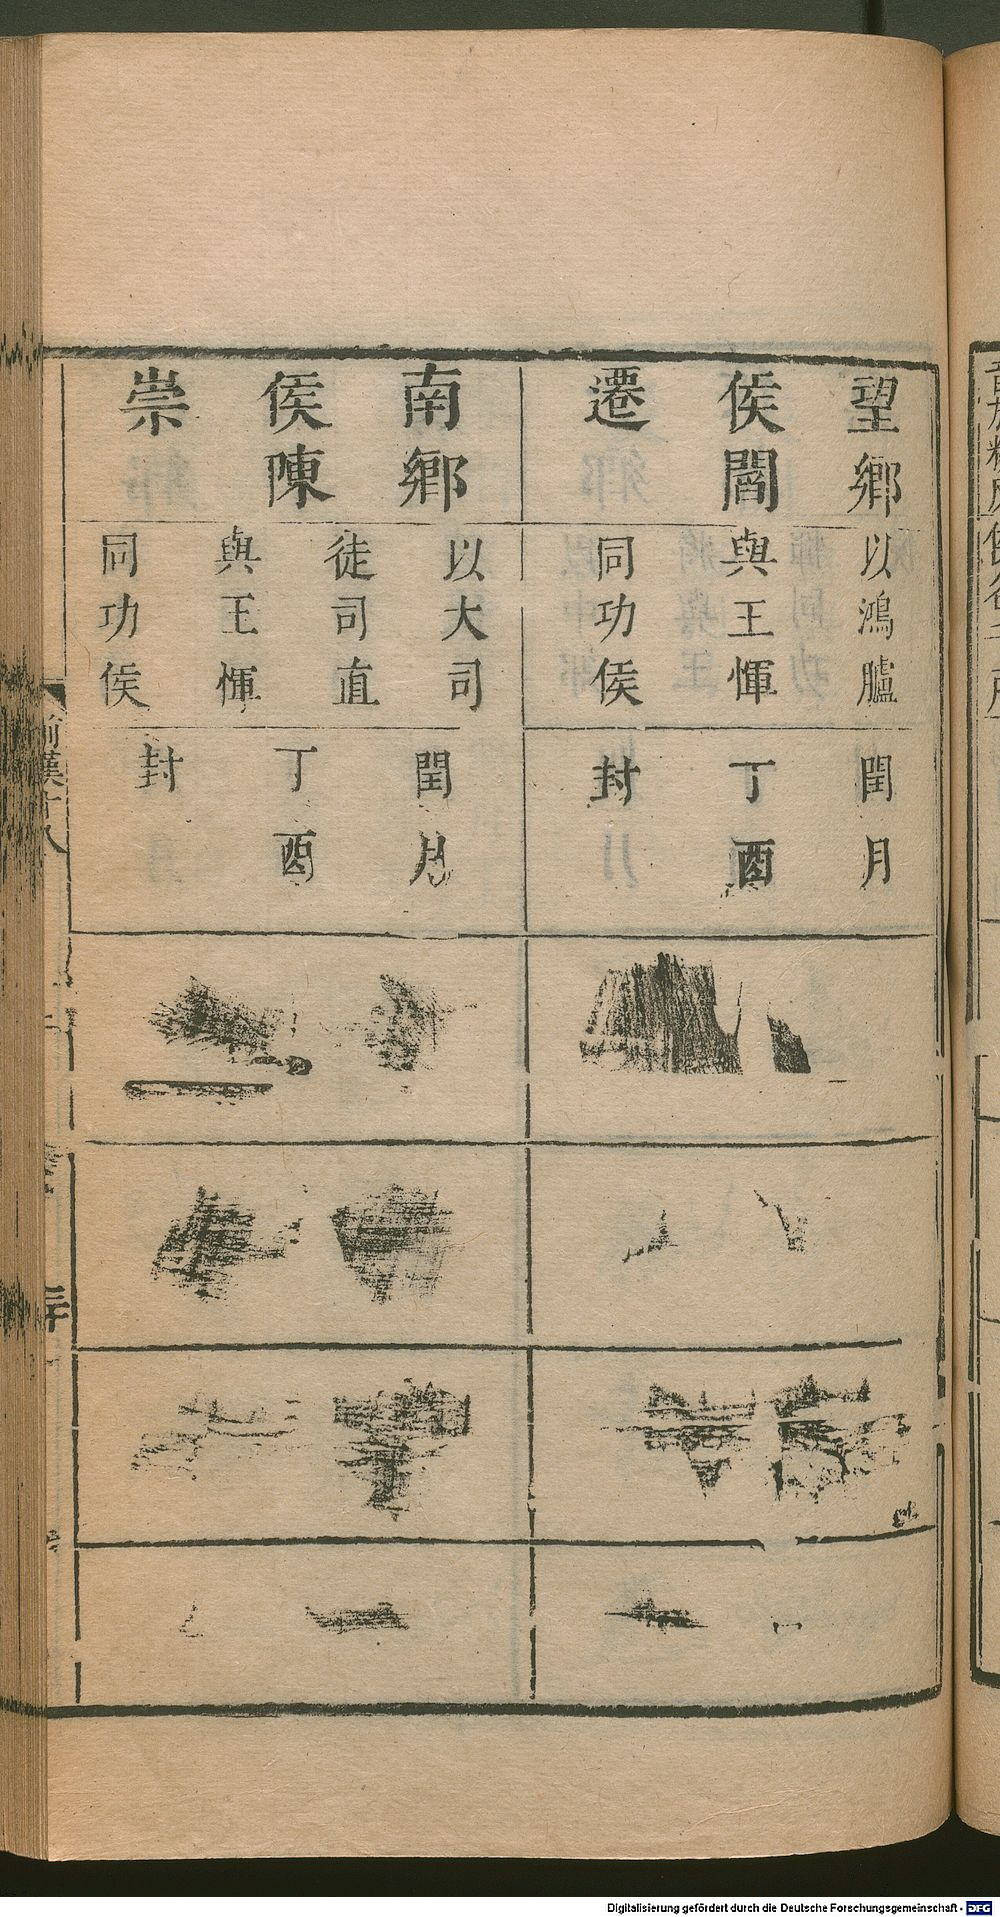 望鄉
侯閻
遷
以鴻臚
與王惲
同功侯
閏月
丁酉
封
南鄉
侯陳
崇
以大司
徒司直
與王惲
同功侯
閏月
丁酉
封
Digitalisierung gefördert durch die Deutsche Forschungsgemeinschaft - DFG